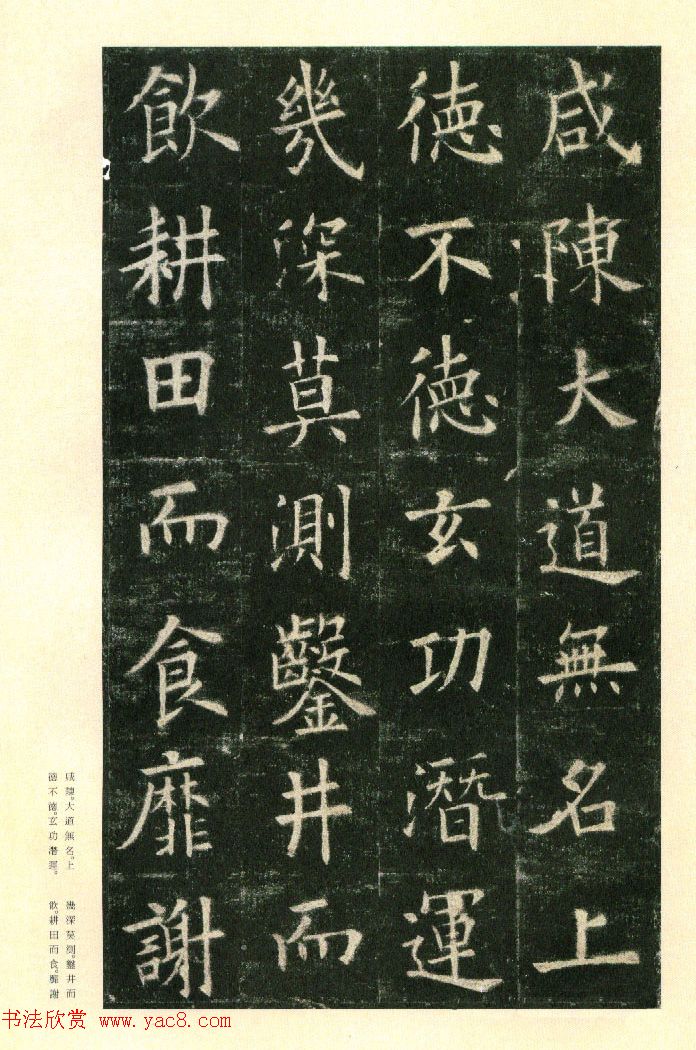 咸陳大道無名上
徳不徳玄功潛運
幾深莫測鑿井而
飲耕田而食靡謝
咸陳。大道無名。上
德不德。玄功潛運。
幾深莫測。鑿井而
飲。耕田而食。靡謝
书法欣赏 www.yac8.com